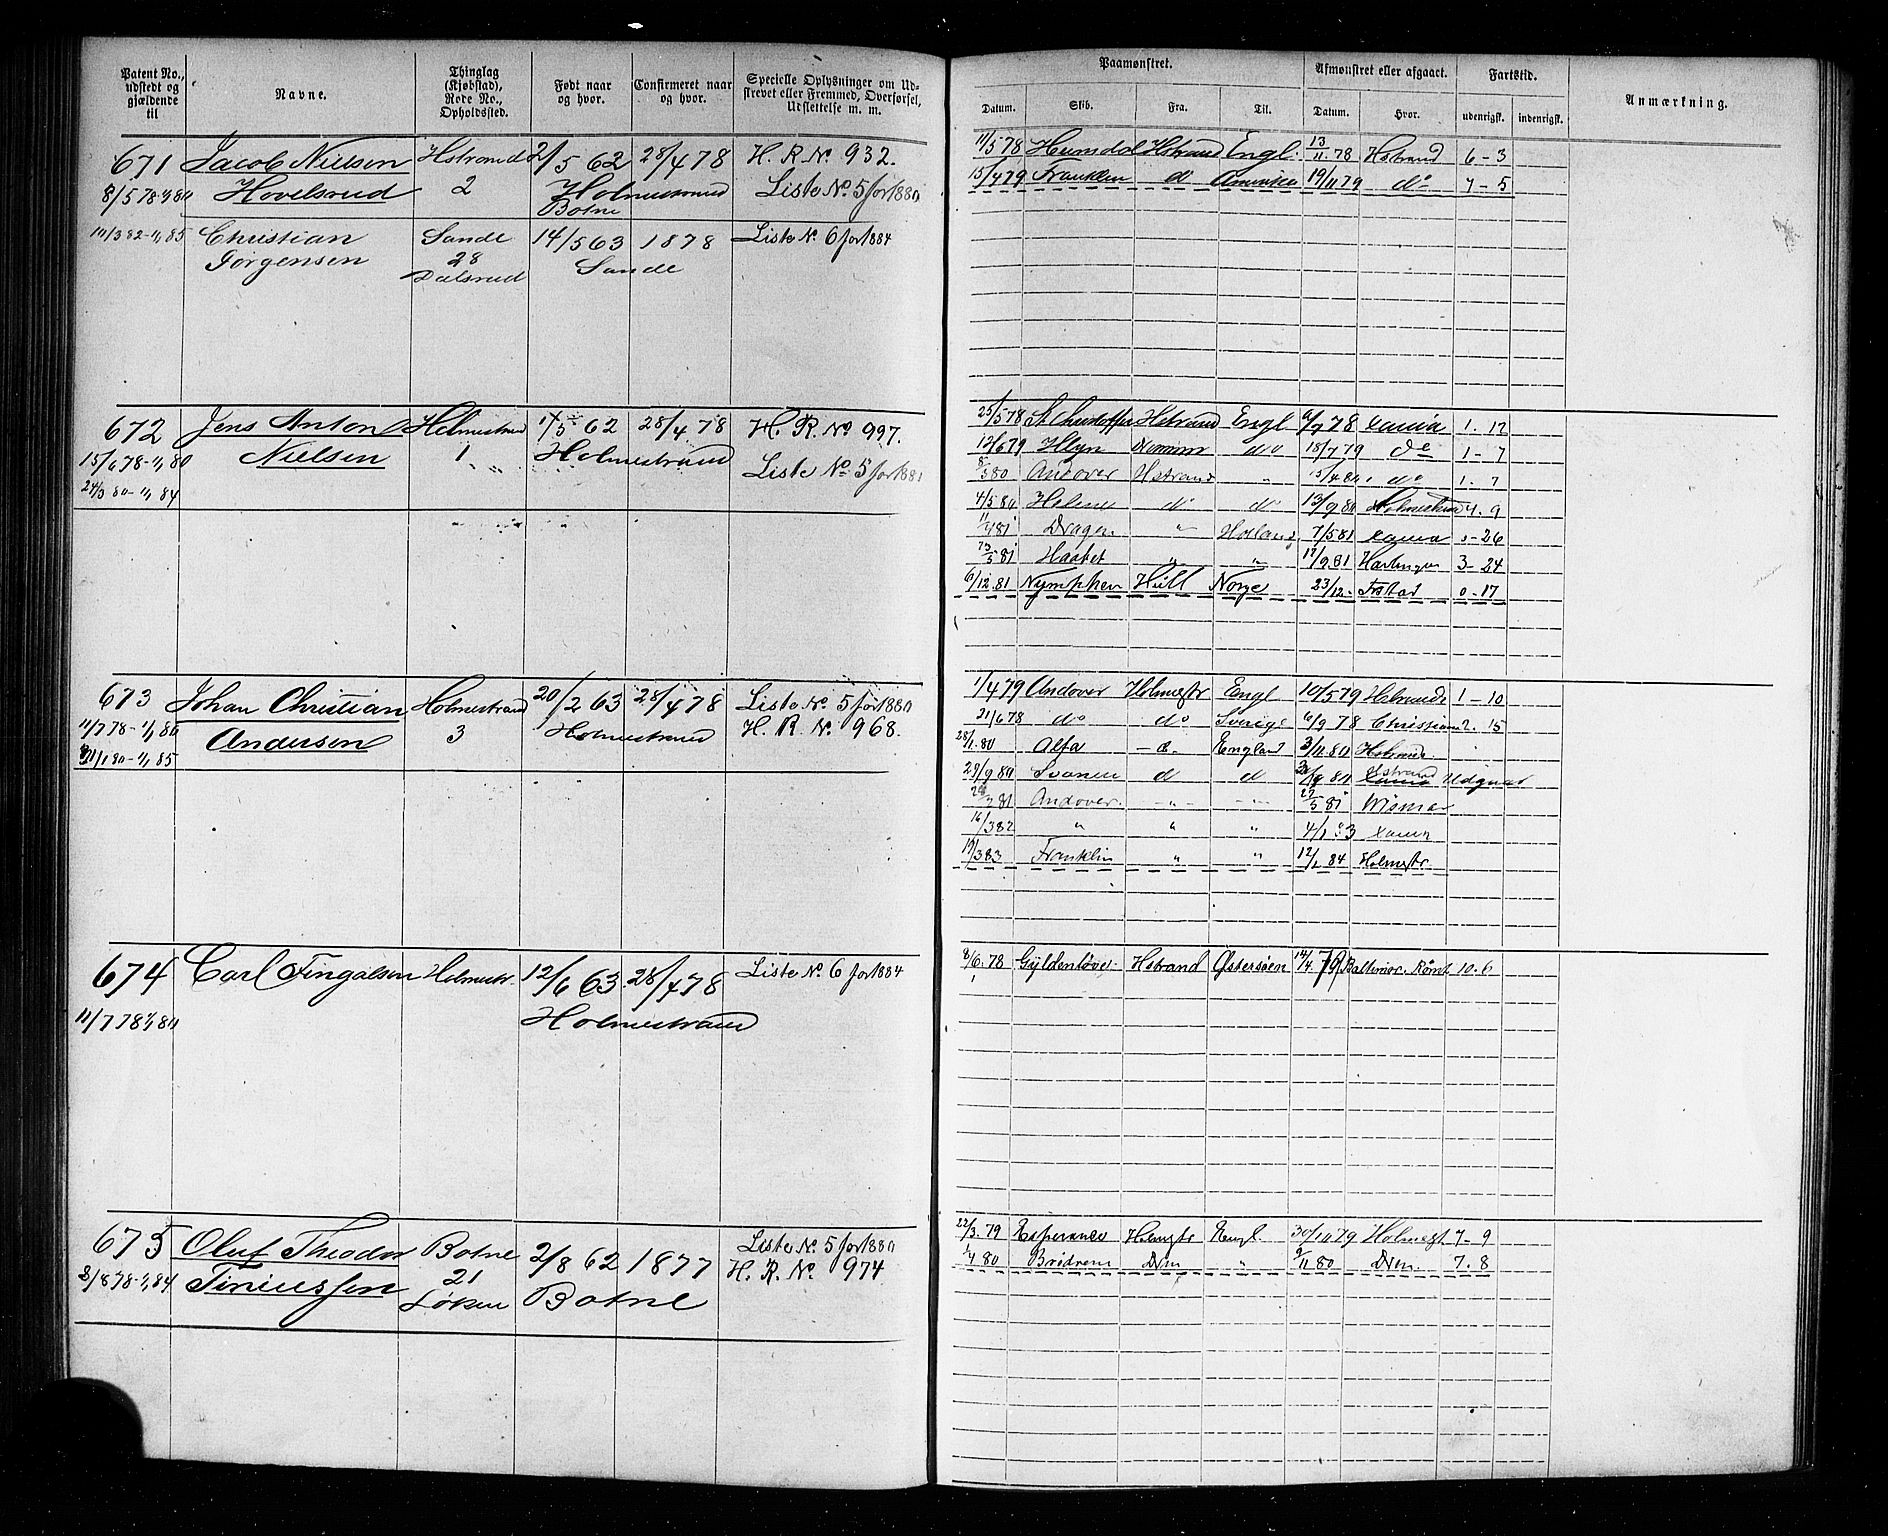 Patent No., udstedt og gjældende til
Navne.
Thinglag (Kjøbstad), Rode No., Opholdssted.
Født naar og hvor.
Confirmeret naar og hvor.
Specielle Oplysninger om Udskrevet eller Fremmed, Overførsel, Udslettelse m. m.
Paamønstret.
Datum.
Skib.
Fra.
Til.
Afmønstret eller afgaaet.
Datum.
Hvor.
Fartstid.
udenrigsk.
indenrigsk.
Anmærkning.
671 Jacob Nielsen Hstrand 2/5 62 28/4 78 H. R. No 932.
Hovelsrud 2 Holmestrand Liste No. 5 for 1880
Botne
Christian Sande 14/5 63 1878 Liste No. 6 for 1884
Jørgensen 28 Sande
Dalsrud
11/5 78 Hstrand Engl. 13/11 78 Hstrand 6 - 3
15/4 79 Franklin do America 19/11 79 do 7 - 5
672 Jens Anton Holmestrand 1/5 62 28/4 78 H. R. No 997.
15/6 78 - 1/1 80 Nielsen 1 Holmestrand
24/3 80 - 1/1 84 Liste No. 5 for 1881
25/5 78 St Christoffer Hstrand Engl 78 1 - 12
12/6 79 do 18/7 79 do 1 - 7
80 Andover Hstrand " do 1 - 7
4/5 80 Helene do do 13/9 80 Holmestrand 4 - 9
81 Dragen " Holland 7/5 81 0 - 26
81 Haabet " " 17/9 81 Harlingen 3 - 24
6/12 81 Nymphen Hull Norge 23/12 - Frstad 0 - 17
673 Johan Christian Holmestrand 20/2 63 28/4 78 Liste No. 5 for 1880
11/7 78 - 1/1 80 Andersen 3 Holmestrand H. R. No. 968.
80 - 1/1 85
1/4 79 Andover Holmestr Engl 10/5 79 Hstrand 1 - 10
21/6 78 do do Sverige 6/9 78 Christiania 2. 15
28/1. 80 Alfa England 3/11 80 Hstrand
29/9 80 Svanen d d Hstrand Udgaar
81 Andover. - " - - " - 22/5 81 Wismar
16/3 82 " " "
19/3 83 Franklin " " 12/1 84 Holmestr.
674 Carl Fingalsen Holmestr. 12/6 63. 28/4 78 Liste No. 6 for 1884
11/7 78 1/1 80 Holmestrand
8/6. 78 Gyldenløve Hstrand Østersøen 14/4. 79 Baltimor. Rømt 10. 6
675 Oluf Theodor Botne 2/8 62 1877 Liste No. 5 for 1880
2/8 78 - 1/1 84 Tiniussen 21 Botne H. R. No. 974
Løken
22/3. 79 Esperance Holmstr Engl. 30/10 79 Holmest. 7 - 9
80 Brødrene Dmn " 9/11 80 Dmn. 7. 8